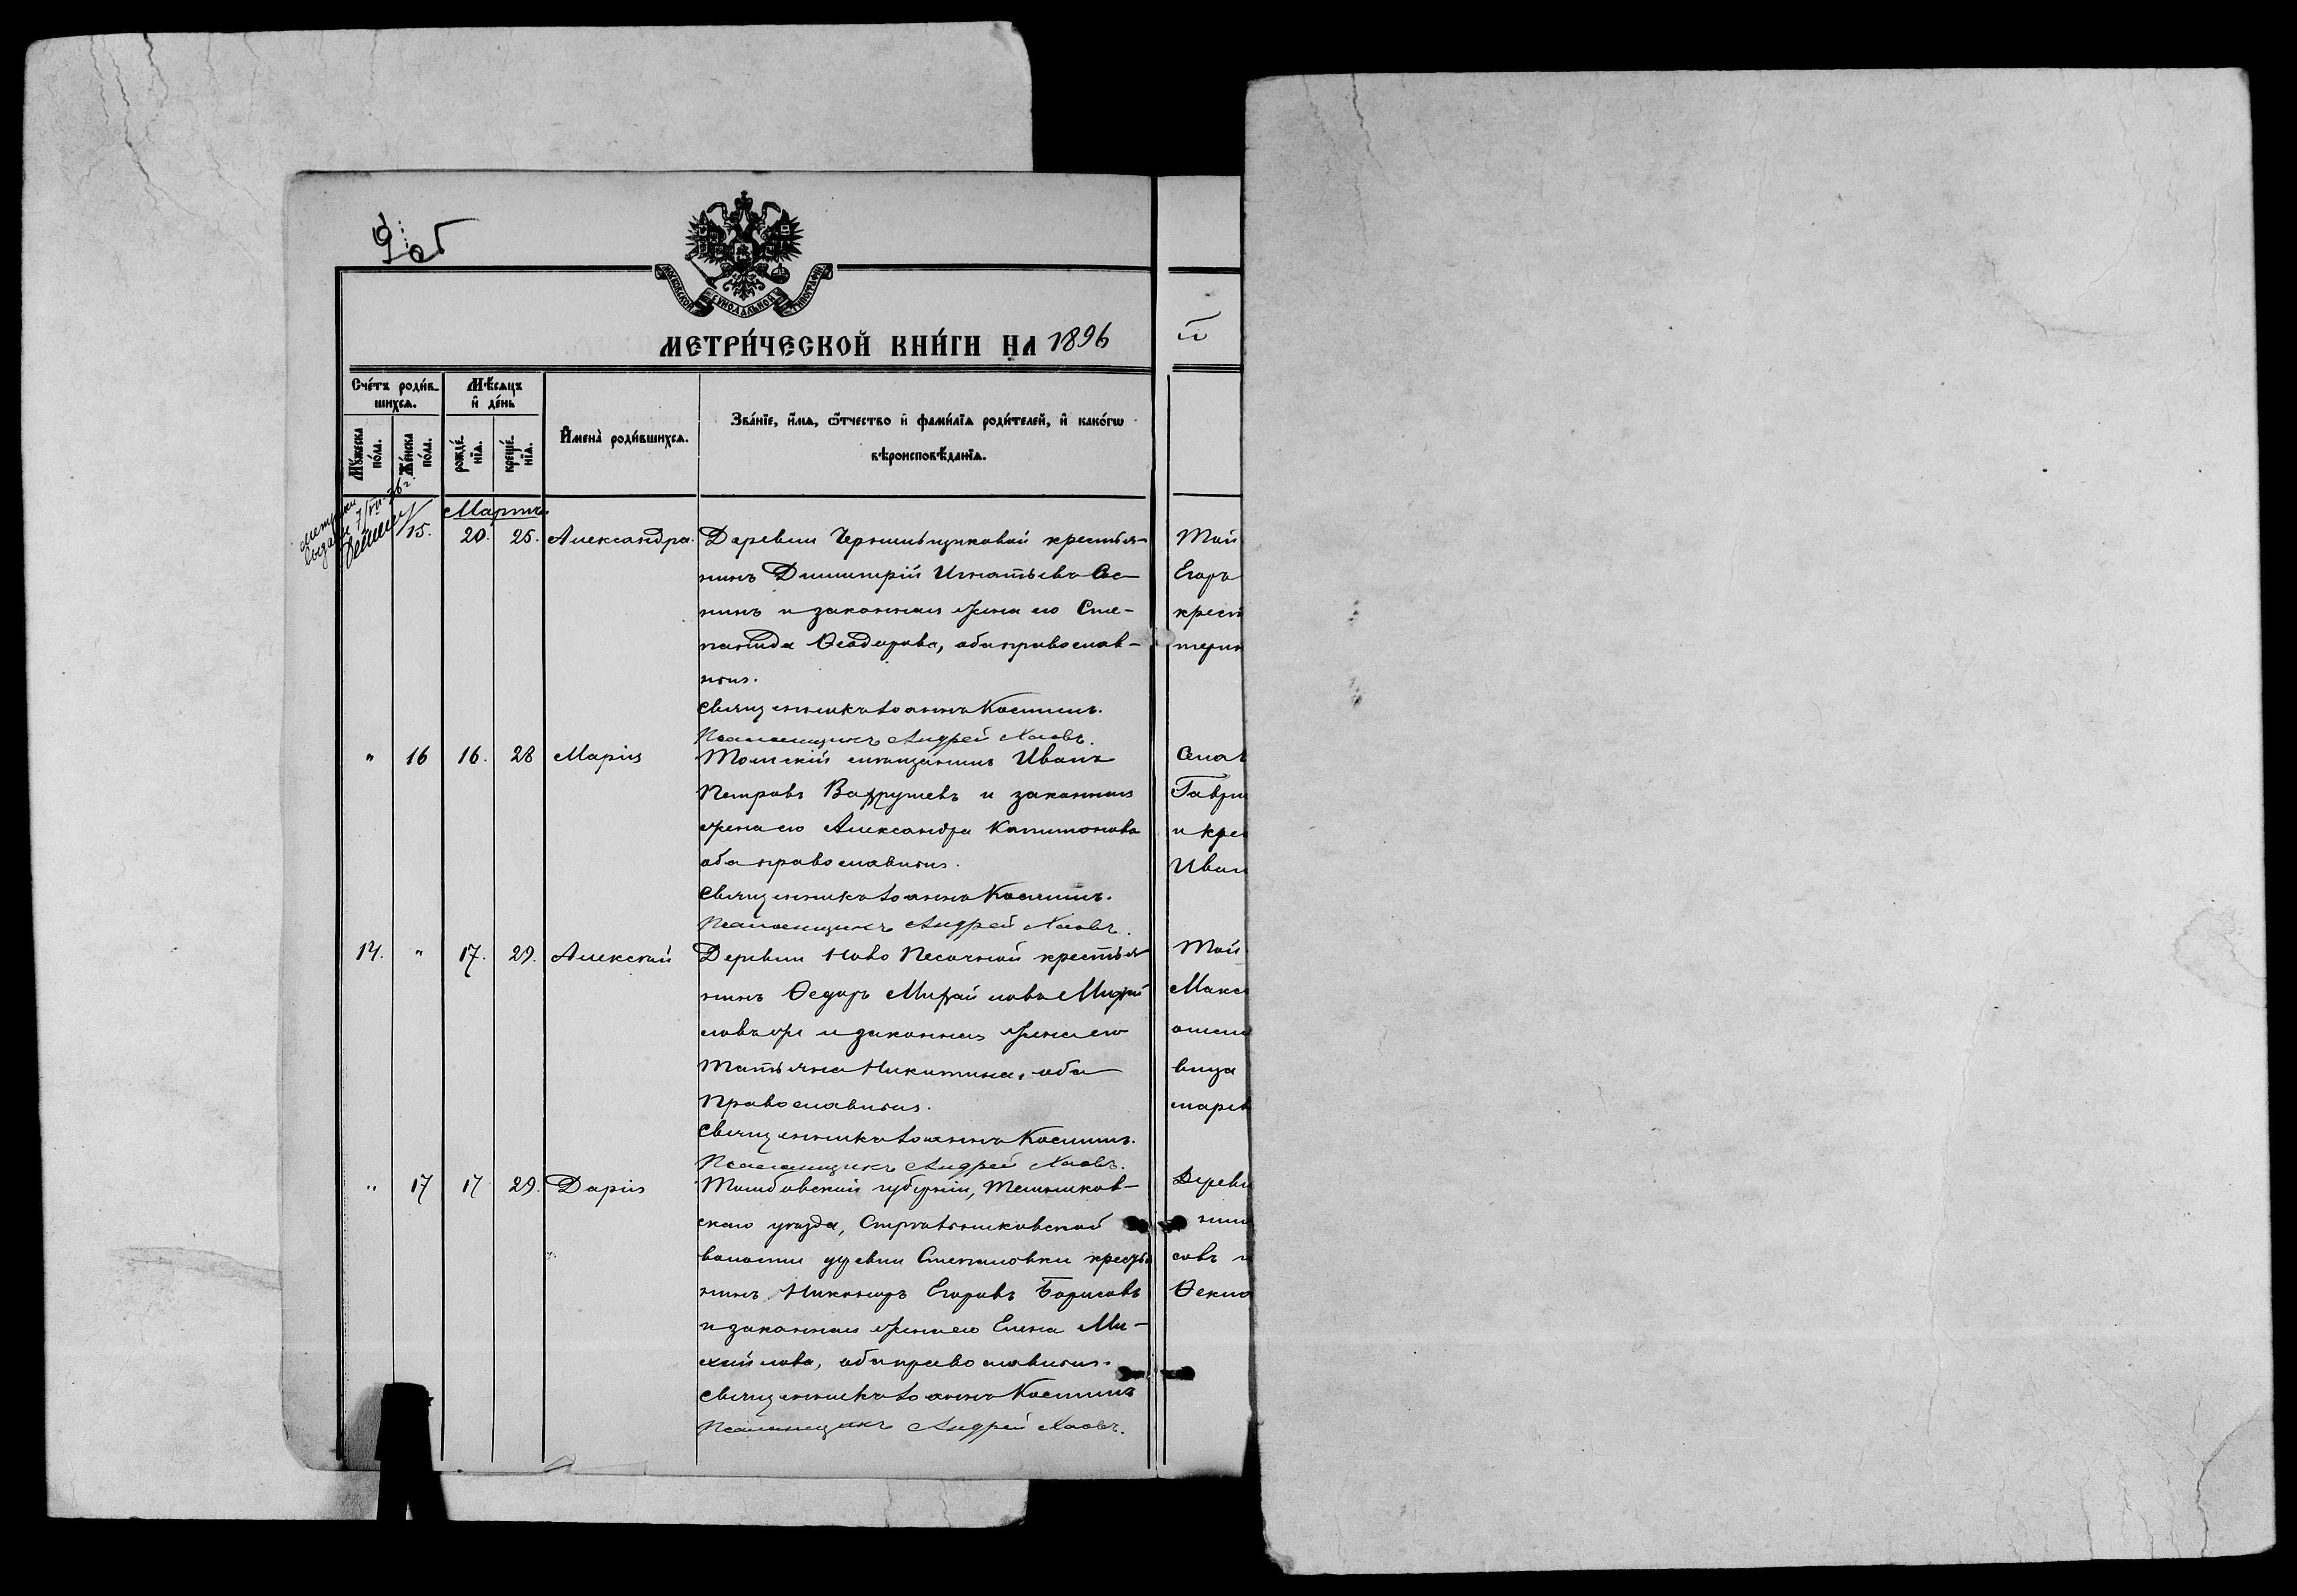 МОСКОВСКОЙ СѴНОДАЛЬНОЙ ТИПОГРАФІИ
МЕТРИ́ЧЕСКОЙ КНИ́ГИ НА 1896
Сче́тъ роди́в-
шихсѧ.
Мѣ́сѧцъ
и҆ де́нь
Мꙋ́жеска
по́ла.
Же́нска
по́ла.
рожде́-
нїѧ.
креще́-
нїѧ.
И҆мена̀ роди́вшихсѧ.
Зва́нїе, и҆́мѧ, ѻ҆́тчество и҆ фами́лїѧ роди́телей, и҆ како́гѡ
вѣроисповѣ́данїѧ.
метрики
выданы 7/VII 36 г.
Мартъ
15. 20. 25. Александра. Деревни крестья-
нинъ Димитрій Игнатьевъ
нинъ и законная жена его Сте-
панида Ѳеодорова, оба православ-
ныя.
Священникъ Іоаннъ Костинъ.
Псаломщикъ Андрей
" 16 16. 28 Марія Томскій мѣщанинъ Иванъ
Петровъ Вахрушевъ и законная
жена его Александра Капитонова
оба православныя.
Священникъ Іоаннъ Костинъ.
Псаломщикъ Андрей
14. " 17. 29. Алексѣй Деревни Ново Песочной крестья-
нинъ Ѳедоръ Михайловъ Михай
ловъ же и законная жена его
Татьяна Никитина, оба
Православныя.
Священникъ Іоаннъ Костинъ.
Псаломщикъ Андрей
" 17 17 29. Дарія Тамбовской губерніи, Темников-
скаго уѣзда,
волости деревни Степановки крестья
нинъ Никаноръ Егоровъ Борисовъ
и законная жена его Елена Ми-
хайлова, оба православныя.
Священникъ Іоаннъ Костинъ
Псаломщикъ Андрей
Той
Егоръ
крест
терин
Села
Гаври
и кре
Иван
Той
Макс
вица
Деревн
нин
совъ и